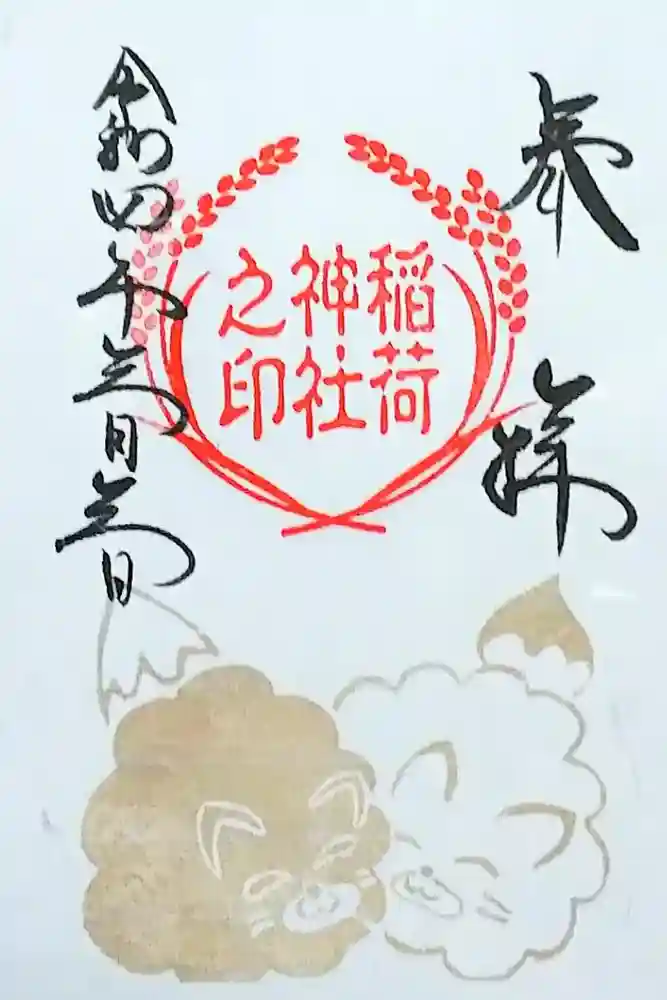 奉拝
稲荷
神社
之印
令和四年三月三日